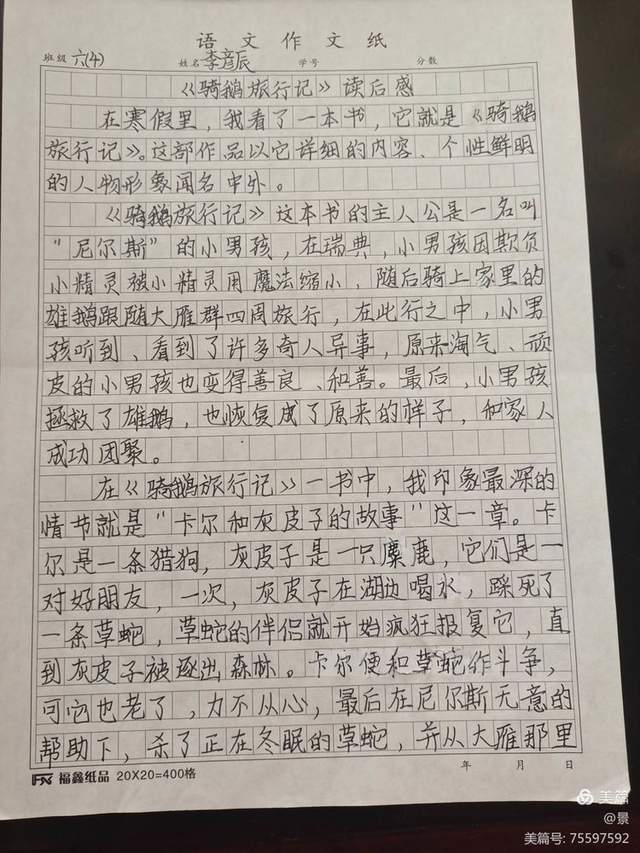 语文作文纸
班级 六(4) 姓名 李彦辰 学号 分数
《骑鹅旅行记》读后感
在寒假里，我看了一本书，它就是《骑鹅
旅行记》。这部作品以它详细的内容、个性鲜明
的人物形象闻名中外。
《骑鹅旅行记》这本书的主人公是一名叫
“尼尔斯”的小男孩，在瑞典，小男孩因欺负
小精灵被小精灵用魔法缩小，随后骑上家里的
雄鹅跟随大雁群四周旅行，在此行之中，小男
孩听到、看到了许多奇人异事，原来淘气、顽
皮的小男孩也变得善良、和善。最后，小男孩
拯救了雄鹅，也恢复成了原来的样子，和家人
成功团聚。
在《骑鹅旅行记》一书中，我印象最深的
情节就是“卡尔和灰皮子的故事”这一章。卡
尔是一条猎狗，灰皮子是一只麋鹿，它们是一
对好朋友，一次，灰皮子在湖边喝水，踩死了
一条草蛇，草蛇的伴侣就开始疯狂报复它，直
到灰皮子被逐出森林。卡尔便和草蛇作斗争，
可它也老了，力不从心，最后在尼尔斯无意的
帮助下，杀了正在冬眠的草蛇，并从大雁那里
年 月 日
FX 福鑫纸品 20X20=400格
美篇
@景
美篇号: 75597592